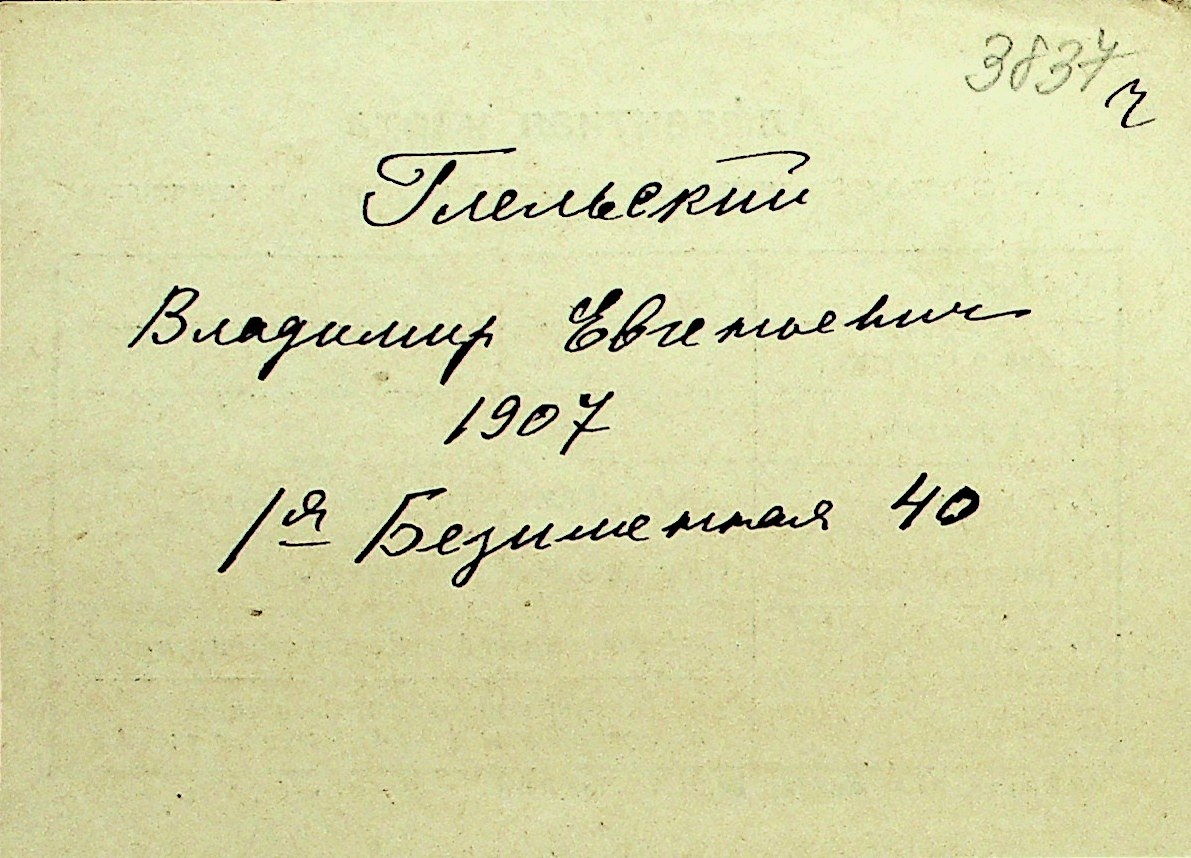 3837
ч
Глельский
Владимир Евгеньевич
1907
1я Безименная 40